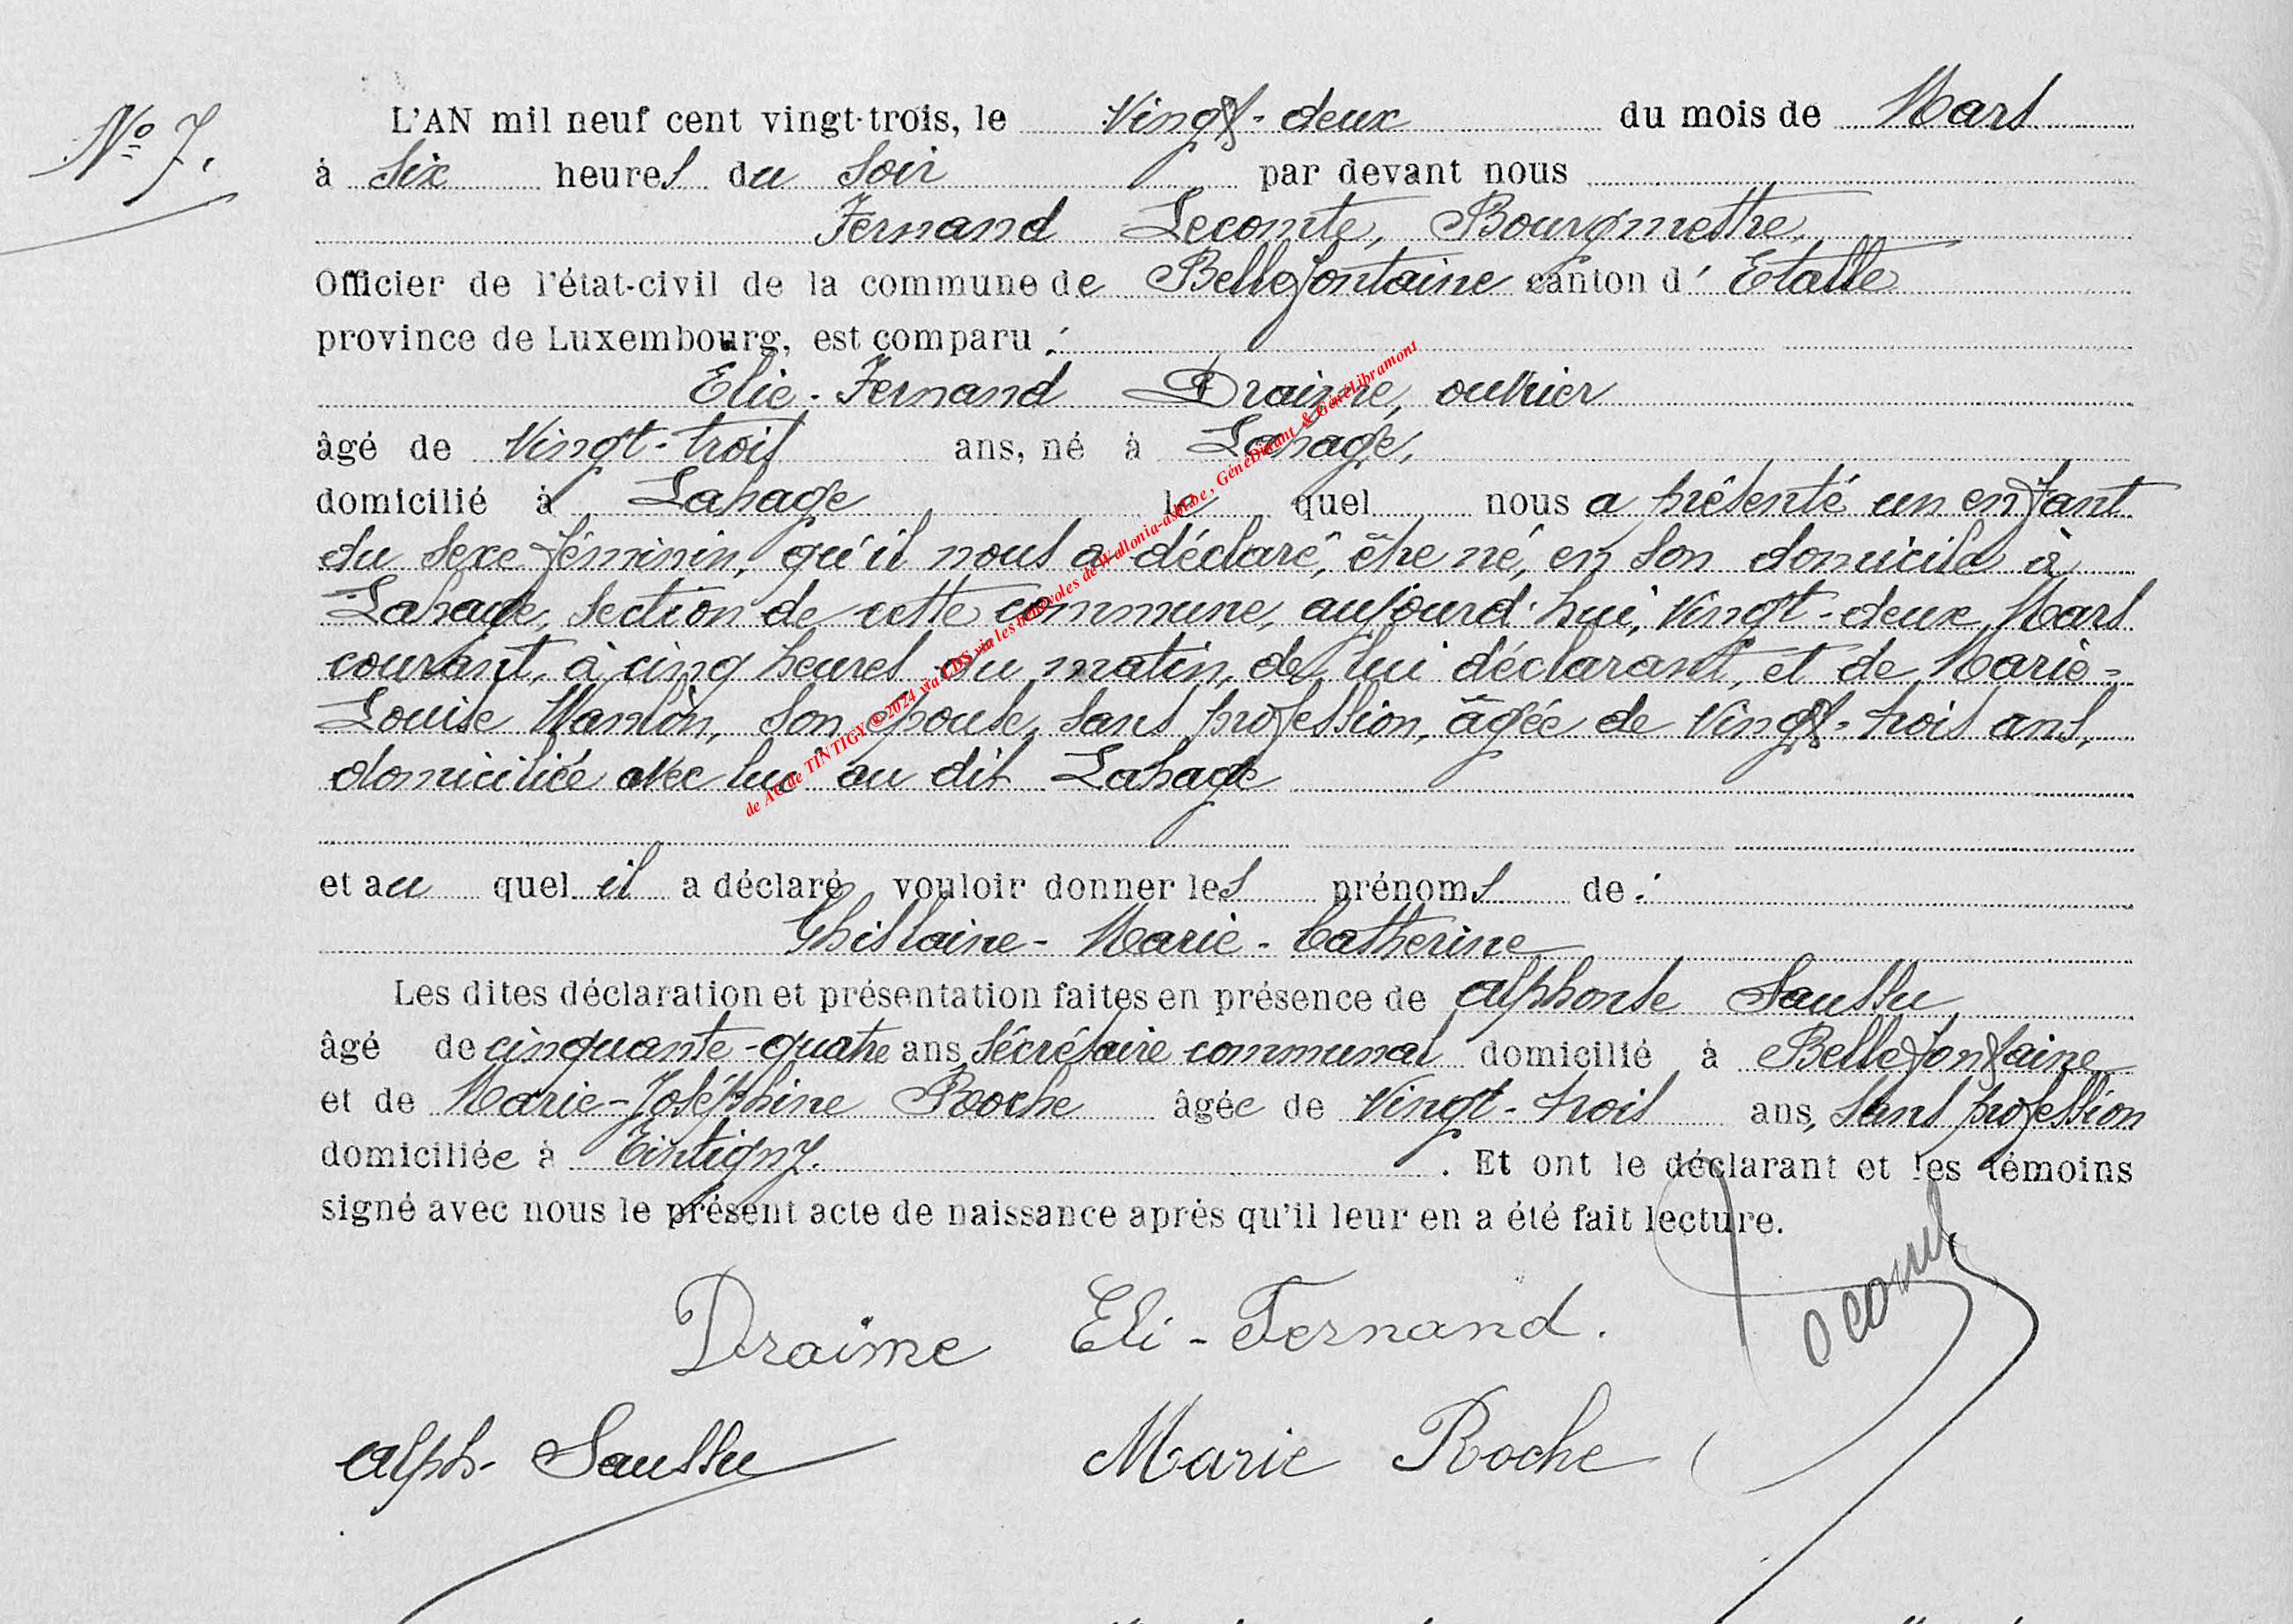 N° 7.
L'AN mil neuf cent vingt-trois, le Vingt-deux du mois de Mars
à six heures du soir par devant nous
Fernand Lecomte, Bourgmestre,
Officier de l'état-civil de la commune de Bellefontaine canton d' Etalle
province de Luxembourg, est comparu :
Elie-Fernand Draime, ouvrier
âgé de Vingt-trois ans, né à Lahage,
domicilié à Lahage le quel nous a présenté un enfant
du sexe féminin, qu'il nous a déclaré, être né, en son domicile à
Lahage, section de cette commune, aujourd'hui, Vingt-deux Mars
courant, à cinq heures du matin, de lui déclarant, et de Marie-
Louise Wanlin, son épouse, sans profession, âgée de Vingt-trois ans,
domiciliée avec lui au dit Lahage
et au quel il a déclaré vouloir donner les prénoms de :
Ghislaine-Marie-Catherine
Les dites déclaration et présentation faites en présence de Alphonse Saussu
âgé de cinquante-quatre ans, sécrétaire communal domicilié à Bellefontaine
et de Marie-Joséphine Roche âgée de Vingt-trois ans, sans profession
domiciliée à Tintigny. . Et ont le déclarant et les témoins
signé avec nous le présent acte de naissance après qu'il leur en a été fait lecture.
Draime Eli-Fernand.
Alph. Saussu Marie Roche
de AC de TINTIGY ©2024 via CDS via les bénévoles de Wallonia-asbl.be, GénéDinant & GénéLibramont